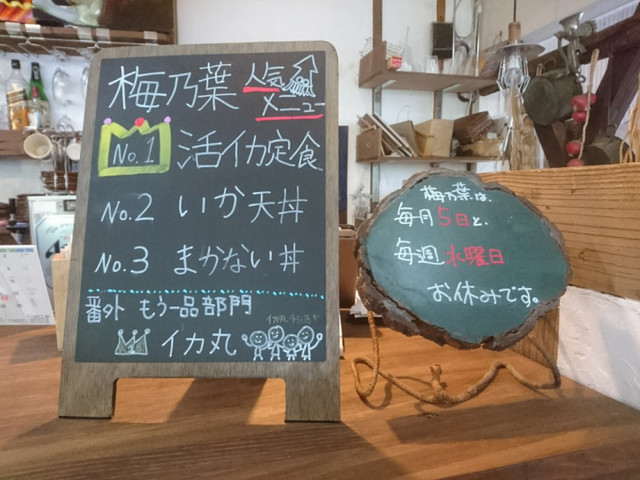 梅乃葉 人気
メニュー
No.1 活イカ定食
No.2 いか天丼
No.3 まかない丼
番外 もう一品部門
イカ丸
梅乃葉は、
毎月5日と、
毎週水曜日
お休みです。